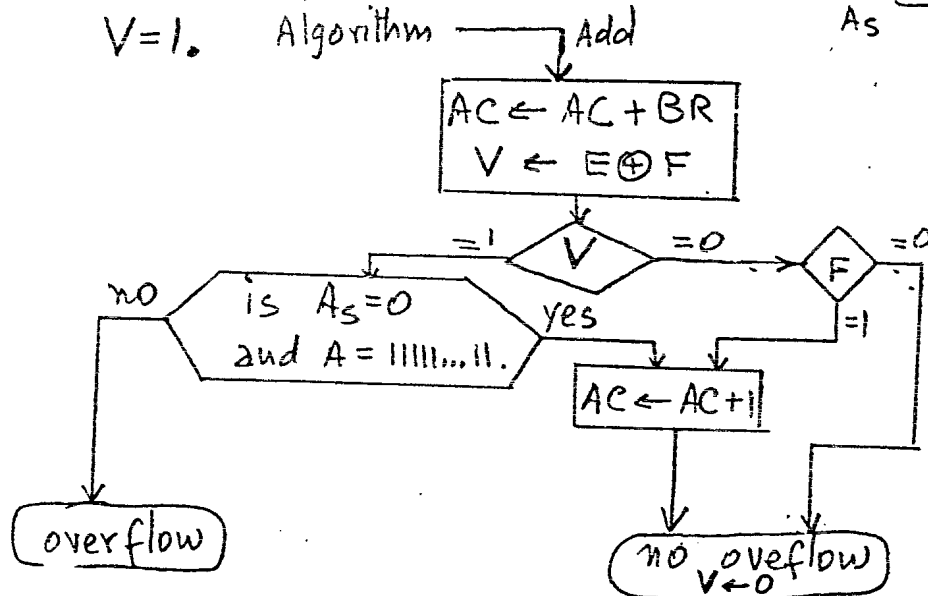 V=1. Algorithm Add
As
AC ← AC + BR
V ← E ⊕ F
=1 V =0 F =0
=1
no is As=0 yes
and A = 11111...11.
AC ← AC+1
overflow
no oveflow
V←0